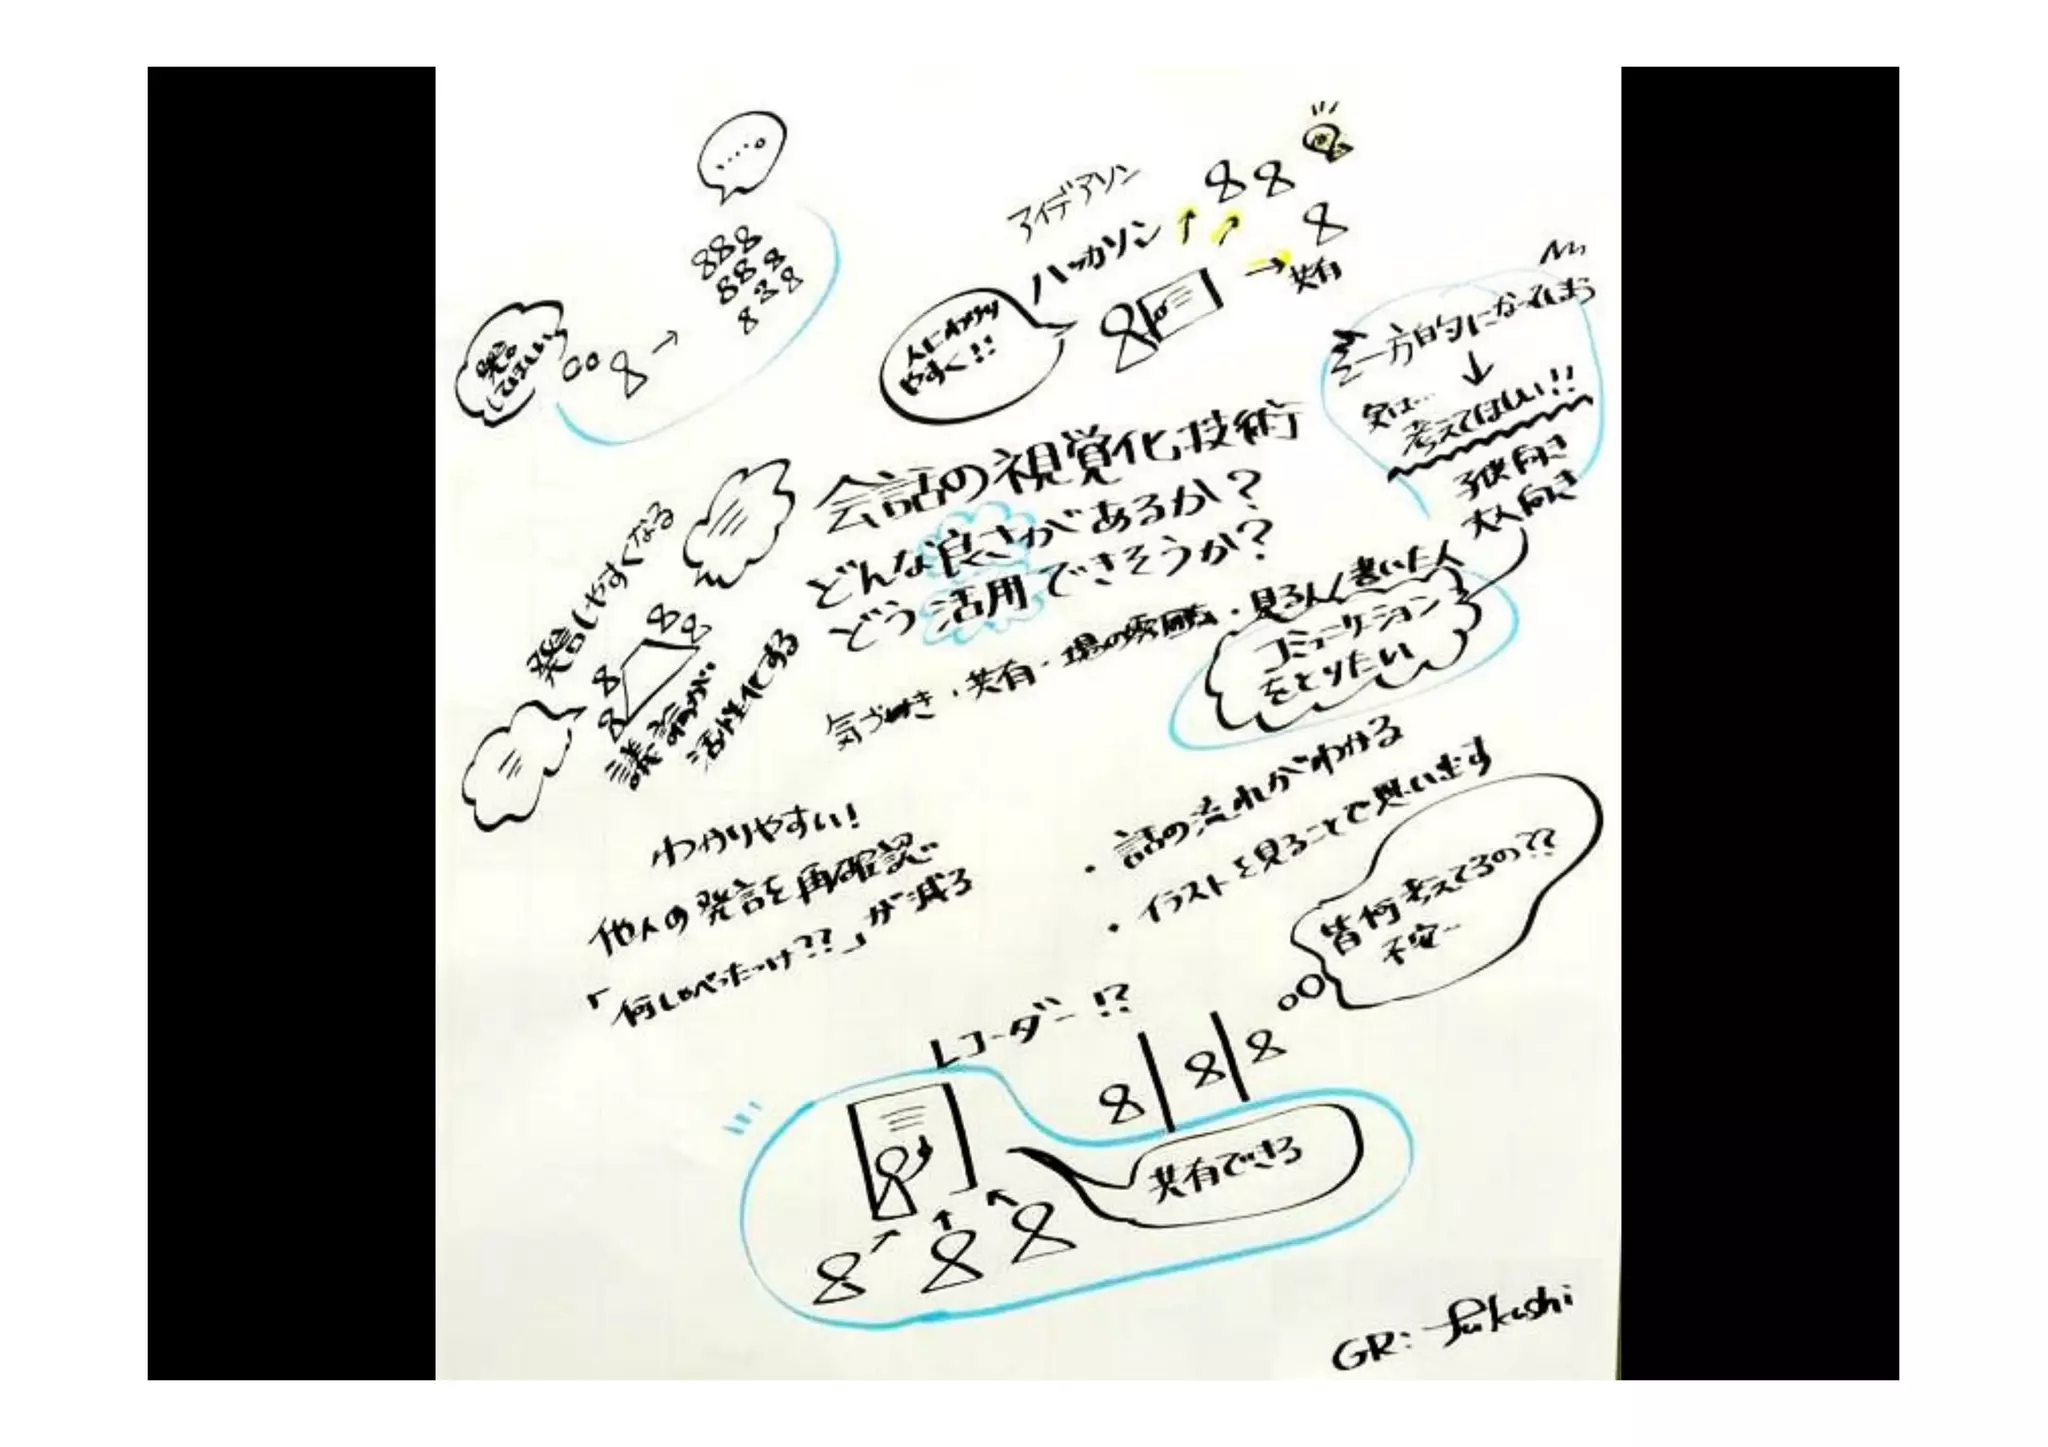 アイデアソン
ハッカソン
人にわかり
やすく!!
共有
一方的になってしまう
↓
実は…
考えてほしい!!
子供向き
大人向き
会話の視覚化技術
どんな良さがあるか?
どう活用できそうか?
気づき・共有・場の雰囲気・見る人
書いた人
コミュニケーション
をとりたい
発言しやすくなる
議論が
活性化する
わかりやすい!
他人の発言を再確認
「何しゃべったっけ??」が減る
・話の流れがわかる
・イラストを見ることで
思います
皆何考えてるの??
不安…
レコーダー!?
共有できる
GR: fukushi